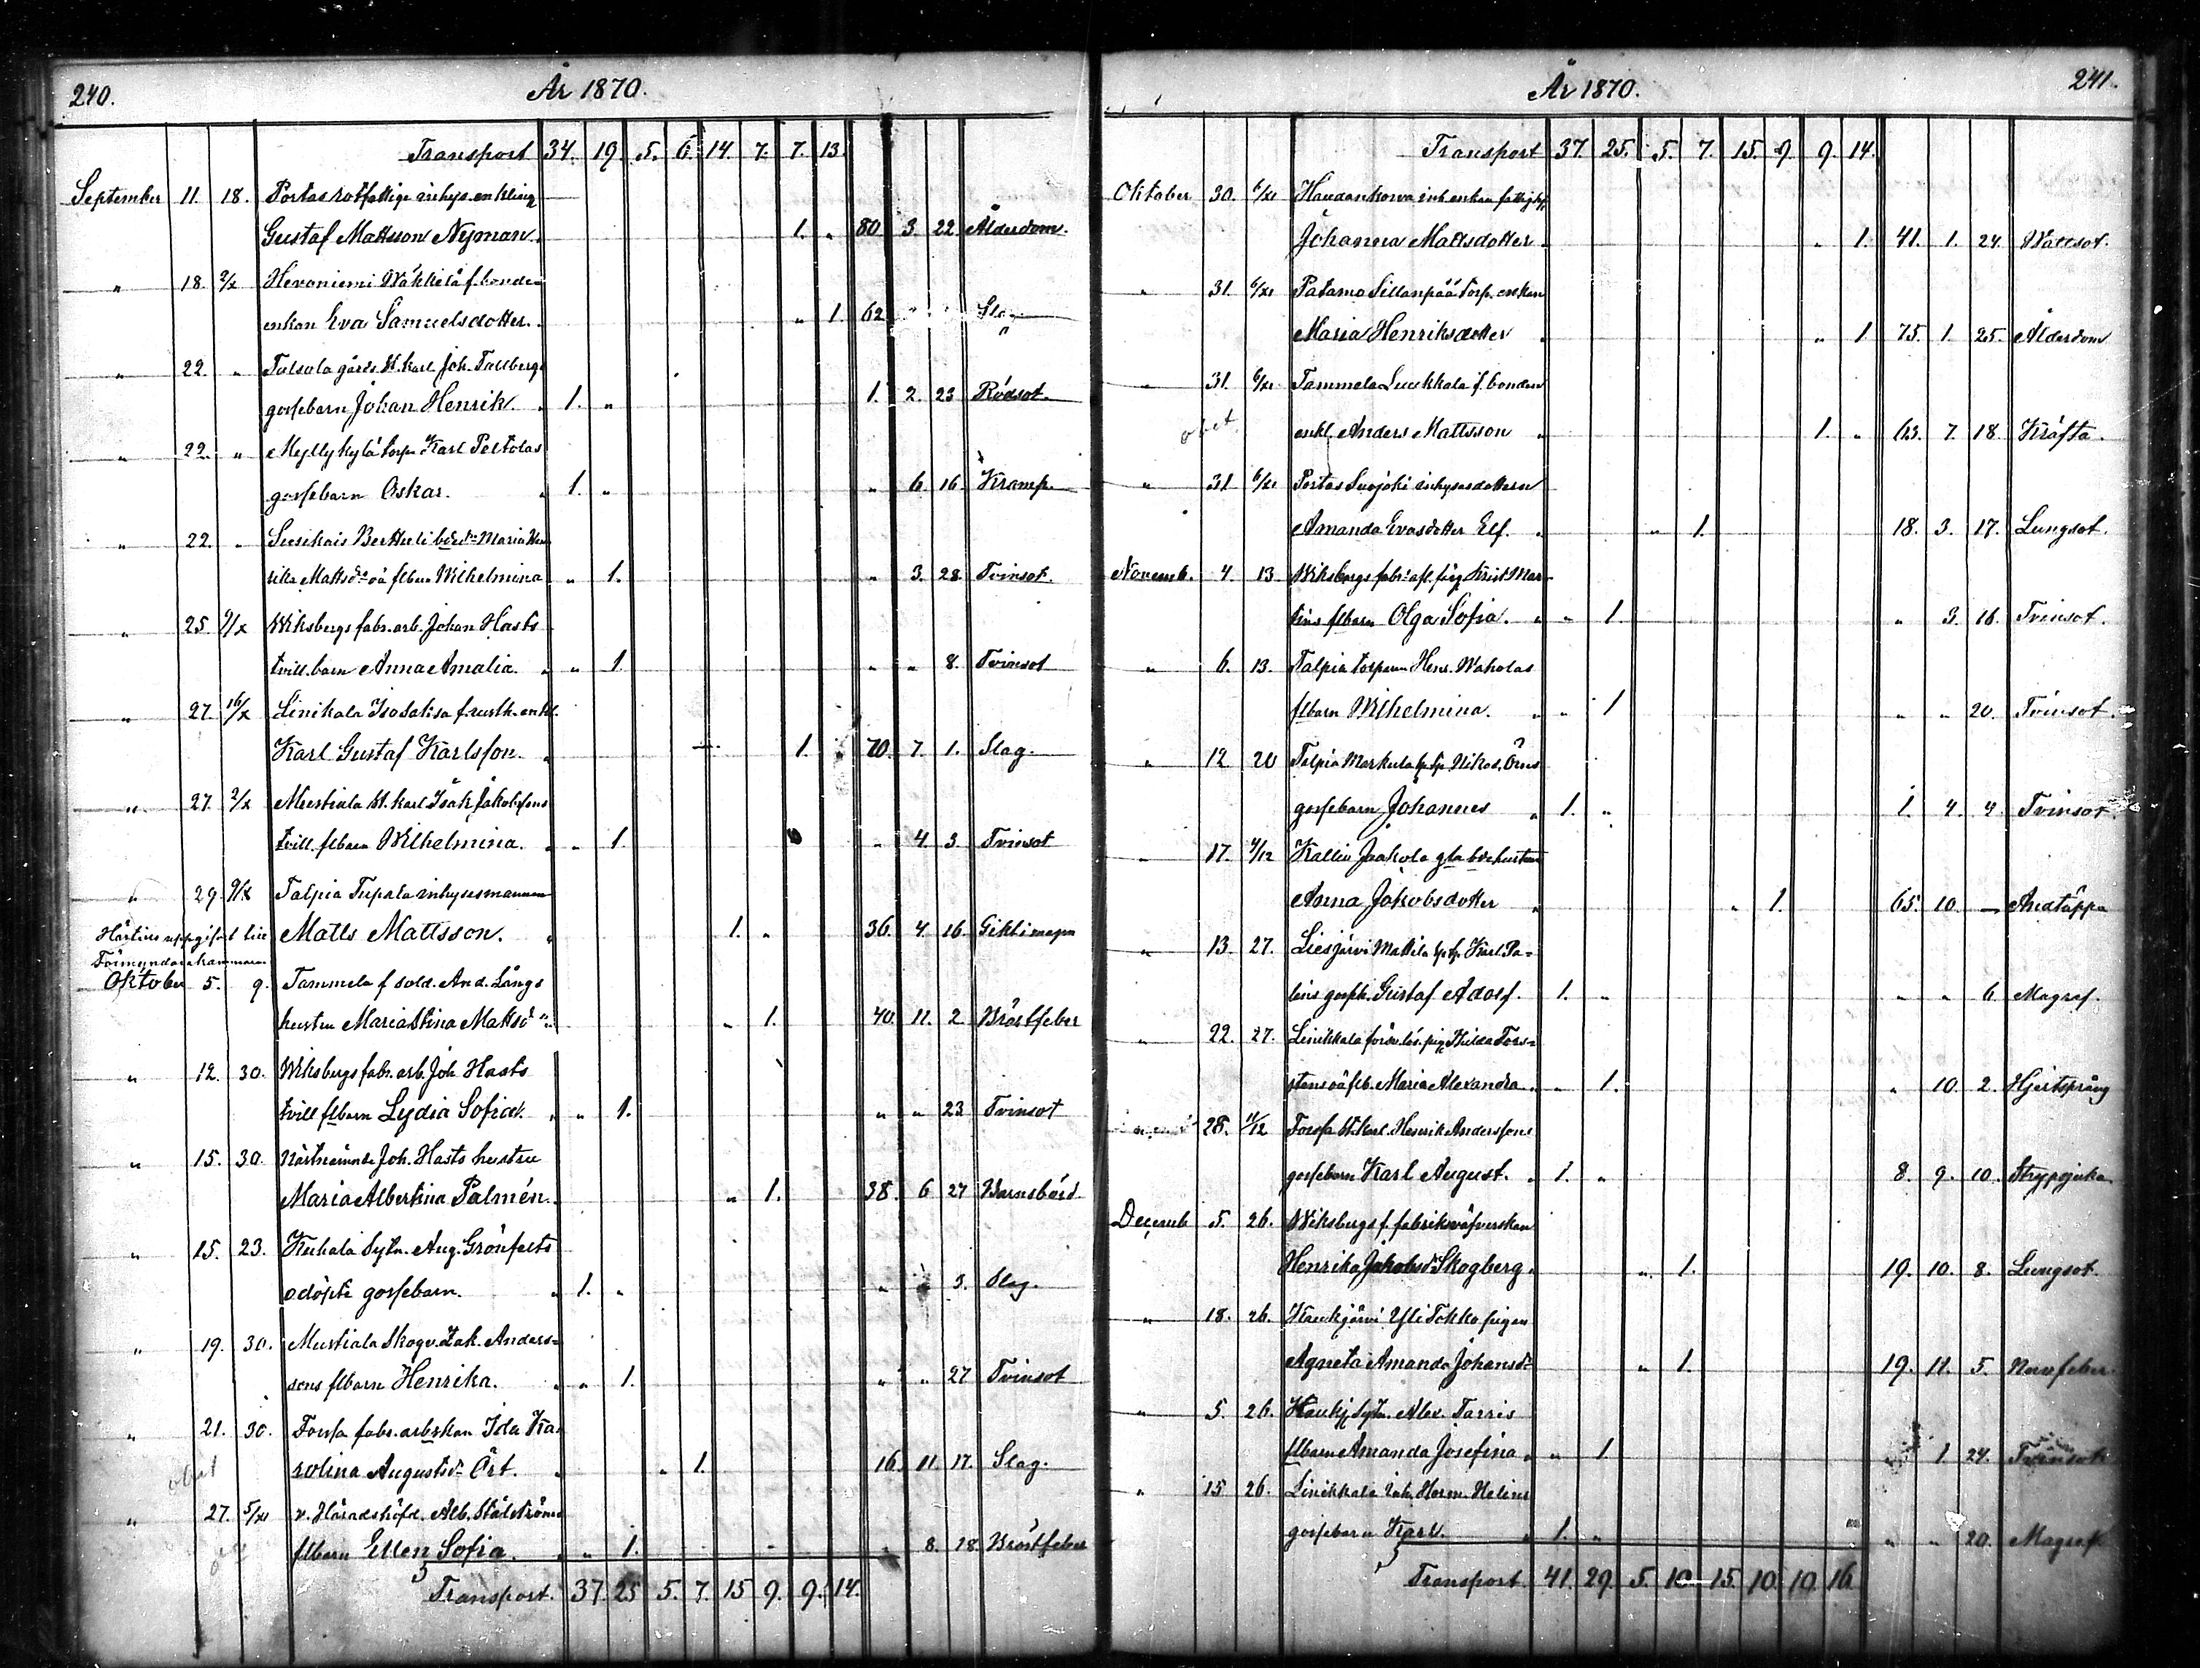 240. År 1870.
Transport 34. 19. 5. 6. 14. 7. 7. 13.
September 11. 18. Portas rotfattige inhys. enkling
Gustaf Mattsson Nyman. 1. „ 80 3. 22. Ålderdom.
„ 18. 2/X Hevoniemi Wäkkilä f. bonde
enkan Eva Samuelsdotter. „ 1. 62 „ „ Slag
„ 22. „ Talsola gårds st. karl Joh. Tallbergs
gossebarn Johan Henrik. 1. „ 1. 2. 23 Rödsot.
„ 22. „ Myllykylä torp. Karl Peltolas
gossebarn Oskar. 1. „ „ 6. 16. Kramp.
„ 22. „ Susikais Bertteli Maria Hen
rika Mattsdrs oä flbarn Wilhelmina „ 1. „ 3. 28. Tvinsot.
„ 25. 9/X Wiksbergs fabr. arb. Johan Hasts
tvill. barn Anna Amalia. „ 1. „ „ 8. Tvinsot
„ 27. 16/X Linikala Isosakisa f. rusth. enkl.
Karl Gustaf Karlsson. 1. 70. 7. 1. Slag.
„ 27. 2/X Mustiala st. karl Isak Jakobssons
tvill. flbarn Wilhelmina. „ 1. „ 4. 3. Tvinsot
„ 29. 9/X Talpia Tupala inhysesmannen
Härtins uppgifvet till Matts Mattsson. 1. „ 36. 4. 16. Gikt i magen
Förmyndarekammaren
Oktober 5. 9. Tammela f sold. And. Långs
hustru Maria Stina Mattsdr „ 1. 40. 11. 2 Bröstfeber
„ 12. 30. Wiksbergs fabr. arb. Joh Hasts
tvill flbarn Lydia Sofia. „ 1. „ „ 23 Tvinsot
„ 15. 30. Näst nämnde Joh. Hasts hustru
Maria Albertina Palmén. „ 1. 38. 6 27 Barnsbörd.
„ 15. 23. Kuhala Sytn. Aug. Grönfelts
odöpte gossebarn. 1. „ „ 3. Slag.
„ 19. 30. Mustiala Skogv. Isak. Anders=
sons flbarn Henrika. „ 1. „ „ 27 Tvinsot
„ 21. 30. Forssa fabr. arbskan Ida Ka
rolina Augustdr Ört. „ 1. 16. 11. 17. Slag.
„ 27. 5/XI v. Häradshöfd. Alb. Stålströms
flbarn Ellen Sofia. „ 1. „ 8. 18. Bröstfeber
Transport. 37. 25 5. 7. 15 9. 9. 14.
År 1870. 241.
Transport 37. 25. 5. 7. 15. 9. 9. 14.
Oktober 30. 6/XI Haudankorva inh enkan fattighj.
Johanna Mattsdotter „ 1. 41. 1. 24. Wattsot.
„ 31. 6/XI Patamo Sillanpää torp. enkan
Maria Henriksdotter „ 1 75. 1. 25. Ålderdom
„ 31. 6/XI Tammela Luukkala f. bonden
enkl. Anders Mattsson 1. „ 63. 7. 18. Kräfta.
„ 31. 6/XI Portas Suojoki inhysesdottern
Amanda Evasdotter Elf. „ 1. 18. 3. 17. Lungsot.
Novemb. 4 13. Wiksbergs fabr. afl. pig Krist Mar=
tins flbarn Olga Sofia. „ 1. „ 3. 16. Tvinsot.
„ 6. 13. Talpia torparen Henr. Waholas
flbarn Wilhelmina. „ 1 „ „ 20. Tvinsot.
„ 12 20 Talpia Markula Nikod. Örns
gossebarn Johannes 1. „ 1. 4. 4. Tvinsot.
„ 17. 4/12 Kallio Jaakola gla bdehustrun
Anna Jakobsdotter „ 1. 65. 10. — Andtäppa
„ 13. 27. Liesjärvi Mattila Karl Pa=
lins gosseb. Gustaf Adolf. 1. „ „ „ 6 Magref.
„ 22. 27. Linikkala försv. lös. pig Hilda Tors=
stens oä flb. Maria Alexandra „ 1. „ 10. 2. Hjertsprång
28. 11/12 Forssa st. karl. Henrik Anderssons
gossebarn Karl August. 1. „ 8. 9. 10. Strypsjuka
Decemb 5. 26. Wiksbergs f. fabriksväfverskan
Henrika Jakobsd Skogberg „ 1. 19. 10. 8. Lungsot.
„ 18. 26. Kaukjärvi Yli Tokko pigan
Agneta Amanda Johansdr „ 1. 19. 11. 5. Nervfeber.
„ 5. 26. Kaukj Sytn. Alex. Tarris
flbarn Amanda Josefina „ 1 „ 1. 24. Tvinsot
„ 15 26. Linikkala inh. Herm. Helins
gossebarn Karl. 1. „ „ „ 20. Magref
Transport. 41. 29. 5. 10 15. 10. 10. 16